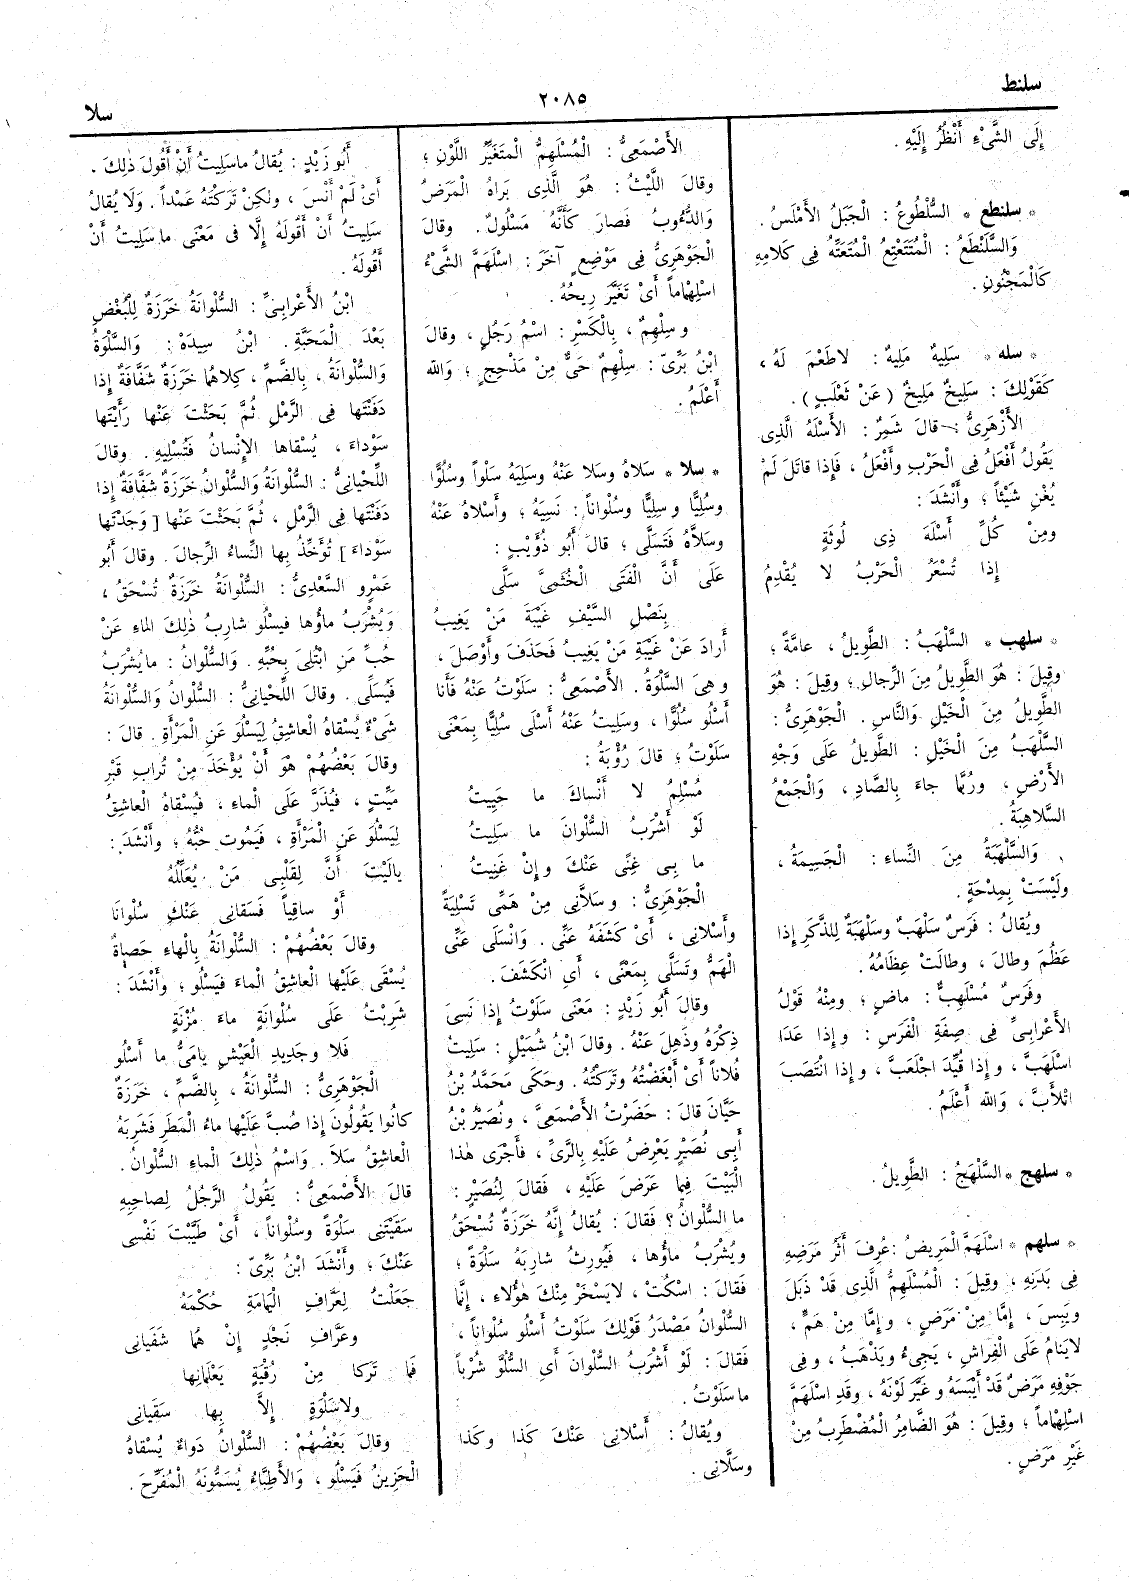 سلنط
٢٠٨٥
سلا
إِلَى الشَّىْءِ أَنْظُرُ إِلَيْهِ .
* سلنطع * السُّلْطُوعُ : الْجَبَلُ الأَمْلَسُ .
وَالسَّلَنْطَعُ : الْمُتَتَعْتِعُ الْمُتَعَتِّهُ فِى كَلامِهِ
كَالْمَجْنُونِ .
* سله * سَلِيهٌ مَلِيهٌ : لاطَعْمَ لَهُ ،
كَقَوْلِكَ : سَلِيخٌ مَلِيخٌ ( عَنْ ثَعْلَبٍ ) .
الأَزْهَرِىُّ : قالَ شَمِرٌ : الأَسْلَهُ الَّذِى
يَقُولُ أَفْعَلُ فِى الْحَرْبِ وأَفْعَلُ ، فَإِذا قاتَلَ لَمْ
يُغْنِ شَيْئاً ؛ وأَنْشَدَ :
ومِنْ كُلِّ أَسْلَهَ ذِى لُوثَةٍ
إِذا تُسْعَرُ الْحَرْبُ لا يُقْدِمُ
* سلهب * السَّلْهَبُ : الطَّوِيلُ ، عامَّةً ؛
وقِيلَ : هُوَ الطَّوِيلُ مِنَ الرِّجالِ ؛ وقِيلَ : هُوَ
الطَّوِيلُ مِنَ الْخَيْلِ وَالنَّاسِ . الْجَوْهَرِىُّ :
السَّلْهَبُ مِنَ الْخَيْلِ : الطَّوِيلُ عَلَى وَجْهِ
الأَرْضِ ، ورُبَّما جاءَ بِالصَّادِ ، وَالْجَمْعُ
السَّلاهِبَةُ .
وَالسَّلْهَبَةُ مِنَ النِّساءِ : الْجَسِيمَةُ ،
ولَيْسَتْ بِمِدْحَةٍ .
ويُقالُ : فَرَسٌ سَلْهَبٌ وسَلْهَبَةٌ لِلذَّكَرِ إِذا
عَظُمَ وطالَ ، وطالَتْ عِظَامُهُ .
وفَرَسٌ مُسْلَهِبٌّ : ماضٍ ؛ ومِنْهُ قَوْلُ
الأَعْرابِىِّ فِى صِفَةِ الْفَرَسِ : وإِذا عَدَا
اسْلَهَبَّ ، وإِذا قُيِّدَ اجْلَعَبَّ ، وإِذا انْتَصَبَ
اتْلأَبَّ ، وَاللهُ أَعْلَمُ .
* سلهج * السَّلْهَجُ : الطَّوِيلُ .
* سلهم * اسْلَهَمَّ الْمَرِيضُ : عُرِفَ أَثَرُ مَرَضِهِ
فِى بَدَنِهِ ، وقِيلَ : الْمُسْلَهِمُّ الَّذِى قَدْ ذَبَلَ
ويَبِسَ ، إِمَّا مِنْ مَرَضٍ ، وإِمَّا مِنْ هَمٍّ ،
لايَنامُ عَلَى الْفِراشِ ، يَجِىءُ ويَذْهَبُ ، وفِى
جَوْفِهِ مَرَضٌ قَدْ أَيْبَسَهُ وغَيَّرَ لَوْنَهُ ، وقَدِ اسْلَهَمَّ
اسْلِهْماماً ؛ وقِيلَ : هُوَ الضَّامِرُ الْمُضْطَرِبُ مِنْ
غَيْرِ مَرَضٍ .
الأَصْمَعِىُّ : الْمُسْلَهِمُّ الْمُتَغَيِّرُ اللَّوْنِ ؛
وقالَ اللَّيْثُ : هُوَ الَّذِى بَراهُ الْمَرَضُ
وَالدُّءُوبُ فَصارَ كَأَنَّهُ مَسْلُولٌ . وقالَ
الْجَوْهَرِىُّ فِى مَوْضِعٍ آخَرَ : اسْلَهَمَّ الشَّىْءُ
اسْلِهْماماً أَىْ تَغَيَّرَ رِيحُهُ .
وسِلْهِمٌ ، بِالْكَسْرِ : اسْمُ رَجُلٍ ، وقالَ
ابْنُ بَرِّىّ : سِلْهِمٌ حَىٌّ مِنْ مَذْحِجٍ ؛ وَاللهُ
أَعْلَمُ .
* سلا * سَلاهُ وسَلا عَنْهُ وسَلِيَهُ سَلْواً وسُلُوًّا
وسُلِيًّا وسِلِيًّا وسُلْواناً : نَسِيَهُ ؛ وأَسْلاهُ عَنْهُ
وسَلاَّهُ فَتَسَلَّى ؛ قالَ أَبُو ذُؤَيْبٍ :
عَلَى أَنَّ الْفَتَى الْخُثَمِىَّ سَلَّى
بِنَصْلِ السَّيْفِ غَيْبَةَ مَنْ يَغِيبُ
أَرادَ عَنْ غَيْبَةِ مَنْ يَغِيبُ فَحَذَفَ وأَوْصَلَ ،
وهِىَ السَّلْوَةُ . الأَصْمَعِىُّ : سَلَوْتُ عَنْهُ فَأَنا
أَسْلُو سُلُوًّا ، وسَلِيتُ عَنْهُ أَسْلَى سُلِيًّا بِمَعْنَى
سَلَوْتُ ؛ قالَ رُؤْبَةُ :
مُسْلِمُ لا أَنْساكَ ما حَيِيتُ
لَوْ أَشْرَبُ السُّلْوانَ ما سَلِيتُ
ما بِى غِنًى عَنْكَ وإِنْ غَنِيتُ
الْجَوْهَرِىُّ : وسَلاَّنِى مِنْ هَمِّى تَسْلِيَةً
وأَسْلانِى ، أَىْ كَشَفَهُ عَنِّى . وَانْسَلَى عَنِّى
الْهَمُّ وتَسَلَّى بِمَعْنًى ، أَىِ انْكَشَفَ .
وقالَ أَبُو زَيْدٍ : مَعْنَى سَلَوْتُ إِذا نَسِىَ
ذِكْرَهُ وذَهِلَ عَنْهُ . وقالَ ابْنُ شُمَيْلٍ : سَلِيتُ
فُلاناً أَىْ أَبْغَضْتُهُ وتَرَكْتُهُ . وحَكَى مُحَمَّدُ بْنُ
حَيَّانَ قالَ : حَضَرْتُ الأَصْمَعِىَّ ، ونُصَيْرُ بْنُ
أَبِى نُصَيْرٍ يَعْرِضُ عَلَيْهِ بِالرَّىِّ ، فَأَجْرَى هٰذا
الْبَيْتَ فِيما عَرَضَ عَلَيْهِ ، فَقالَ لِنُصَيْرٍ :
ما السُّلْوانُ ؟ فَقالَ : يُقالُ إِنَّهُ خَرَزَةٌ تُسْحَقُ
ويُشْرَبُ ماؤُها ، فَيُورِثُ شارِبَهُ سَلْوَةً ؛
فَقالَ : اسْكُتْ ، لايَسْخَرْ مِنْكَ هٰؤُلاءِ ، إِنَّما
السُّلْوانُ مَصْدَرُ قَوْلِكَ سَلَوْتُ أَسْلُو سُلْواناً ،
فَقالَ : لَوْ أَشْرَبُ السُّلْوانَ أَىِ السُّلُوَّ شُرْباً
ما سَلَوْتُ .
ويُقالُ : أَسْلانِى عَنْكَ كَذا وكَذا
وسَلاَّنِى .
أَبُو زَيْدٍ : يُقالُ ماسَلِيتُ أَنْ أَقُولَ ذٰلِكَ .
أَىْ لَمْ أَنْسَ ، ولكِنْ تَرَكْتُهُ عَمْداً . وَلَا يُقالُ
سَلِيتُ أَنْ أَقُولَهُ إِلَّا فى مَعْنَى ما سَلِيتُ أَنْ
أَقُولَهُ .
ابْنُ الأَعْرابِىِّ : السُّلْوانَةُ خَرَزَةٌ لِلْبُغْضِ
بَعْدَ الْمَحَبَّةِ . ابْنُ سِيدَهْ : وَالسَّلْوَةُ
وَالسُّلْوانَةُ ، بِالضَّمِّ ، كِلاهُما خَرَزَةٌ شَفَّافَةٌ إِذا
دَفَنْتَها فِى الرَّمْلِ ثُمَّ بَحَثْتَ عَنْها رَأَيْتَها
سَوْداءَ ، يُسْقاها الإِنْسانُ فَتُسْلِيهِ . وقالَ
اللِّحْيانِىُّ : السُّلْوانَةُ وَالسُّلْوانُ خَرَزَةٌ شَفَّافَةٌ إِذا
دَفَنْتَها فِى الرَّمْلِ ، ثُمَّ بَحَثْتَ عَنْها [ وَجَدْتَها
سَوْداءَ ] تُؤَخِّذُ بِها النِّساءُ الرِّجالَ . وقالَ أَبُو
عَمْرٍو السَّعْدِىُّ : السُّلْوانَةُ خَرَزَةٌ تُسْحَقُ ،
وَيُشْرَبُ ماؤُها فَيسْلُو شارِبُ ذٰلِكَ الماءِ عَنْ
حُبِّ مَنِ ابْتُلِىَ بِحُبِّهِ . وَالسُّلْوانُ : ما يُشْرَبُ
فَيُسَلِّى . وقالَ اللِّحْيانِىُّ : السُّلْوانُ وَالسُّلْوانَةُ
شَىْءٌ يُسْقاهُ الْعاشِقُ لِيَسْلُوَ عَنِ الْمَرْأَةِ . قالَ :
وقالَ بَعْضُهُمْ هُوَ أَنْ يُؤْخَذَ مِنْ تُرابِ قَبْرِ
مَيِّتٍ ، فَيُذَرَّ عَلَى الْماءِ ، فَيُسْقاهُ الْعاشِقُ
لِيَسْلُوَ عَنِ الْمَرْأَةِ ، فَيَمُوت حُبُّهُ ؛ وأَنْشَدَ :
يالَيْتَ أَنَّ لِقَلْبِى مَنْ يُعَلِّلُهُ
أَوْ ساقِياً فَسَقانِى عَنْكِ سُلْوانَا
وقالَ بَعْضُهُمْ : السُّلْوانَةُ بِالْهاءِ حَصاةٌ
يُسْقَى عَلَيْها الْعاشِقُ الْماءَ فَيَسْلُو ؛ وأَنْشَدَ :
شَرِبْتُ عَلَى سُلْوانَةٍ ماءَ مُزْنَةٍ
فَلا وجَدِيدِ الْعَيْشِ يامَىُّ ما أَسْلُو
الْجَوْهَرِىُّ : السُّلْوانَةُ ، بِالضَّمِّ ، خَرَزَةٌ
كانُوا يَقُولُونَ إِذا صُبَّ عَلَيْها ماءُ الْمَطَرِ فَشَرِبَهُ
الْعاشِقُ سَلاَ . وَاسْمُ ذٰلِكَ الْماءِ السُّلْوانُ .
قالَ الأَصْمَعِىُّ : يَقُولُ الرَّجُلُ لِصاحِبِهِ
سَقَيْتَنِى سَلْوَةً وسُلْواناً ، أَىْ طَيَّبْتَ نَفْسِى
عَنْكَ ؛ وأَنْشَدَ ابْنُ بَرِّىّ :
جَعَلْتُ لِعَرَّافِ الْيَمامَةِ حُكْمَهُ
وعَرَّافِ نَجْدٍ إِنْ هُما شَفَيانِى
فَما تَرَكا مِنْ رُقْيَةٍ يَعْلَمانِها
ولاسَلْوَةٍ إِلاَّ بِها سَقَيانِى
وقالَ بَعْضُهُمْ : السُّلْوانُ دَواءٌ يُسْقاهُ
الْحَزِينُ فَيَسْلُو ، وَالأَطِبَّاءُ يُسَمُّونَهُ الْمُفَرِّحَ .